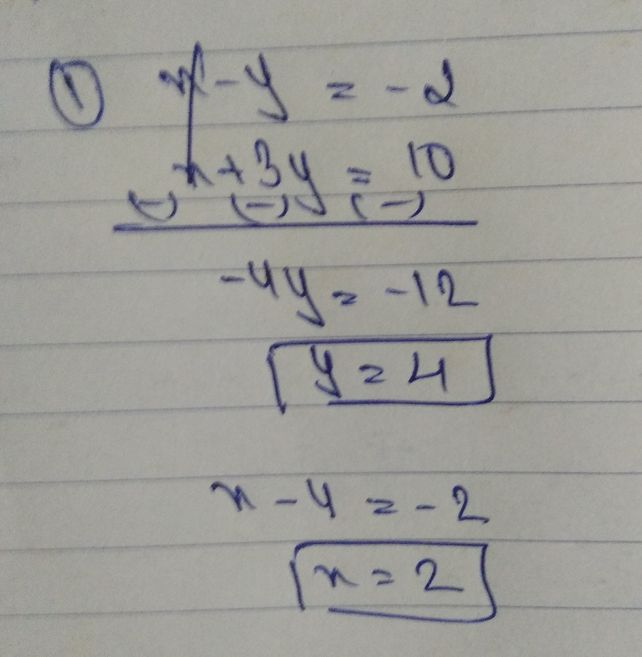 ① x - y = -2
x + 3y = 10
(-) (-) (-)
-4y = -12
y = 4
x - 4 = -2
x = 2